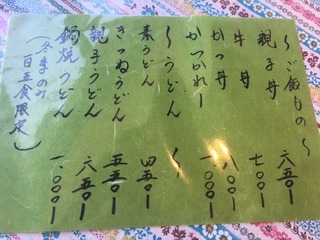 〜ご飯もの〜
親子丼 六五〇ー
牛丼 七〇〇ー
かつ丼 八〇〇ー
かつかれー 一、〇〇〇ー
〜うどん〜
素うどん 四五〇ー
きつねうどん 五五〇ー
親子うどん 六五〇ー
鍋焼うどん 一、〇〇〇ー
（冬季のみ 一日五食限定）